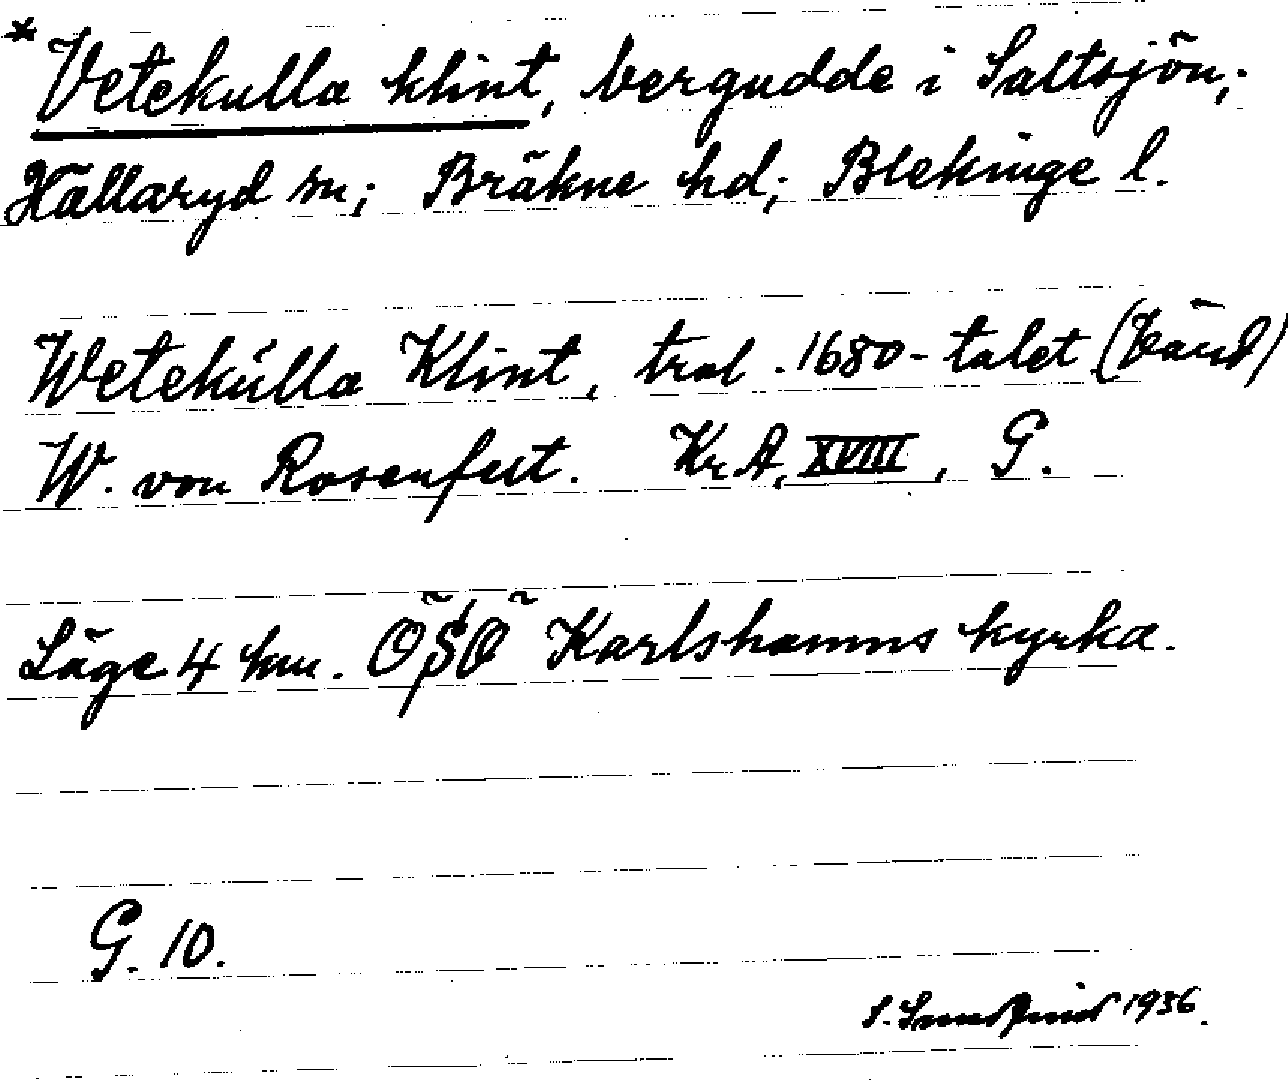 * Vetekulla klint, bergudde i Saltsjön;
Hällaryd sn; Bräkne hd; Blekinge l.
Wetekúlla Klint, trol. 1680-talet
W. von Rosenfelt. Kr.A, XVIII, G.
Läge 4 km. OSO Karlshamns kyrka.
G. 10.
1936.